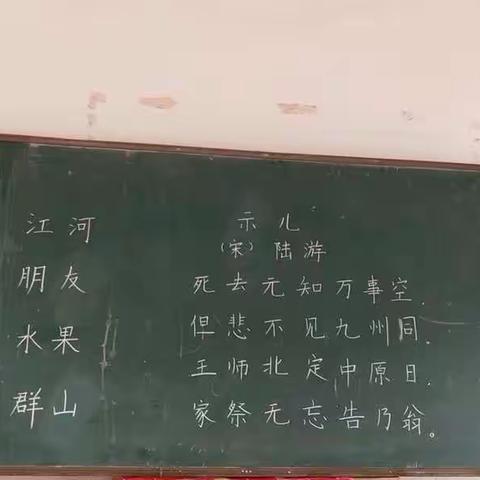 江河
朋友
水果
群山
示儿
（宋）陆游
死去元知万事空.
但悲不见九州同.
王师北定中原日.
家祭无忘告乃翁。